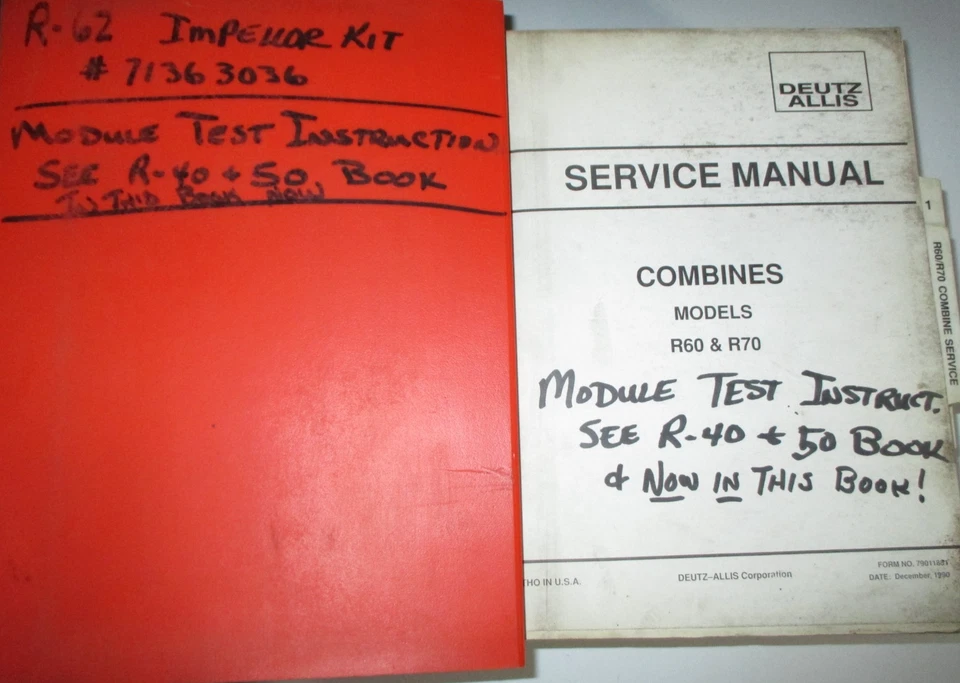 R-62 IMPELLOR KIT
# 71363036
MODULE TEST INSTRUCTION
SEE R-40 + 50 BOOK
IN THIS BOOK NOW
DEUTZ
ALLIS
SERVICE MANUAL
COMBINES
MODELS
R60 & R70
MODULE TEST INSTRUCT.
SEE R-40 + 50 BOOK
& NOW IN THIS BOOK!
THO IN U.S.A.
DEUTZ-ALLIS Corporation
FORM NO.
DATE: December, 1990
1
R60/R70 COMBINE SERVICE